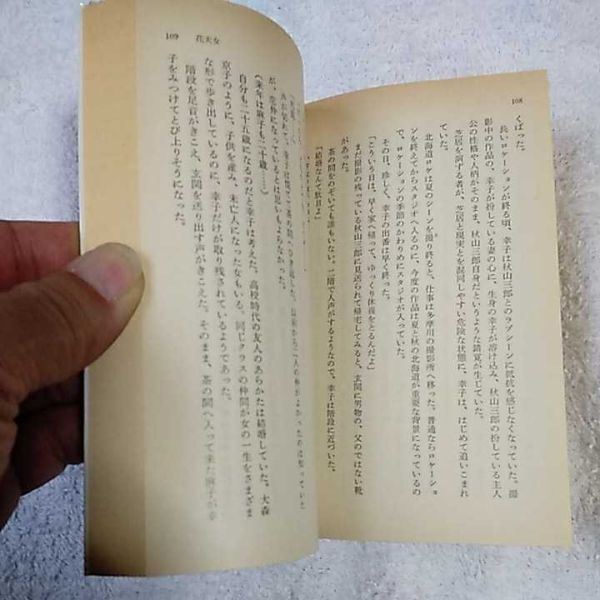 108
くばった。
長いロケーションが終る頃、幸子は秋山三郎とのラブシーンに抵抗を感じなくなっていた。撮
影中の作品の、幸子が扮している妻の心に、生身の幸子が溶け込み、秋山三郎の扮している主人
公の性格や人柄がそのまま、秋山三郎自身だというような錯覚が生じていた。
芝居を演ずる者が、芝居と現実とを混同しやすい危険な状態に、幸子は、はじめて追いこまれ
ていた。
北海道ロケは夏のシーンを撮り終ると、仕事は多摩川の撮影所へ移った。普通ならロケーショ
ンを終えてからスタジオへ入るのに、今度の作品は夏と秋の北海道が重要な背景になっているの
で、ロケーションの季節のかわりめにスタジオが入っていた。
その日、珍しく、幸子の出番は早く終った。
「こういう日は、早く家へ帰って、ゆっくり休養をとるんだよ」
まだ撮影の残っている秋山三郎に見送られて帰宅してみると、玄関に男物の、父のではない靴
があった。
茶の間をのぞいても誰もいない。二階で人声がするようなので、幸子は階段に近づいた。
「結婚なんて駄目よ」
109 花天女
が、恋仲になっているとは思いもよらなかった。
(来年は麻子も二十歳……)
自分も二十五歳になるのだと幸子は考えた。高校時代の友人のあらかたは結婚していた。大森
京子のように、子供を産み、未亡人になった女もいる。同じクラスの仲間が女の一生をさまざま
な形で歩き出しているのに、幸子だけが取り残されているようであった。
階段を足音がきこえ、玄関を送り出す声がきこえた。そのまま、茶の間へ入って来た麻子が幸
子をみつけてとび上りそうになった。